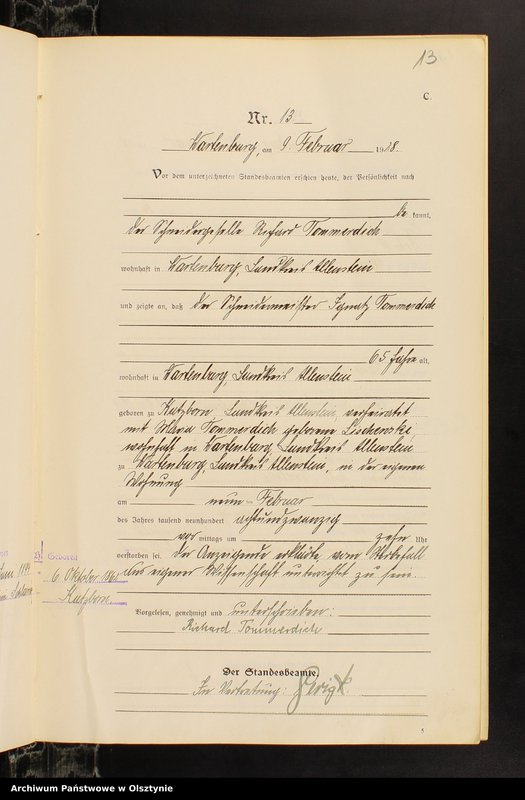 13
C.
Nr. 13
Wartenburg, am 9. Februar 1928.
Vor dem unterzeichneten Standesbeamten erschien heute, der Persönlichkeit nach
be kannt,
der Schneidergeselle Richard Tommerdich
wohnhaft in Wartenburg, Landkreis Allenstein
und zeigte an, daß der Schneidermeister Ignatz Tommerdich
65 Jahre alt,
wohnhaft in Wartenburg, Landkreis Allenstein
geboren zu Katzborn, Landkreis Allenstein, verheiratet
mit Maria Tommerdich geborene
wohnhaft in Wartenburg, Landkreis Allenstein
zu Wartenburg, Landkreis Allenstein, in der eigenen
Wohnung
am neun Februar
des Jahres tausend neunhundert achtundzwanzig
vor mittags um zehn Uhr
verstorben sei. Der Anzeigende erklärte vom Sterbefall
aus eigener Wissenschaft unterrichtet zu sein.
Geboren
6. Oktober
Katzborn
Vorgelesen, genehmigt und unterschrieben:
Richard Tommerdich
Der Standesbeamte.
In Vertretung:
5
Archiwum Państwowe w Olsztynie